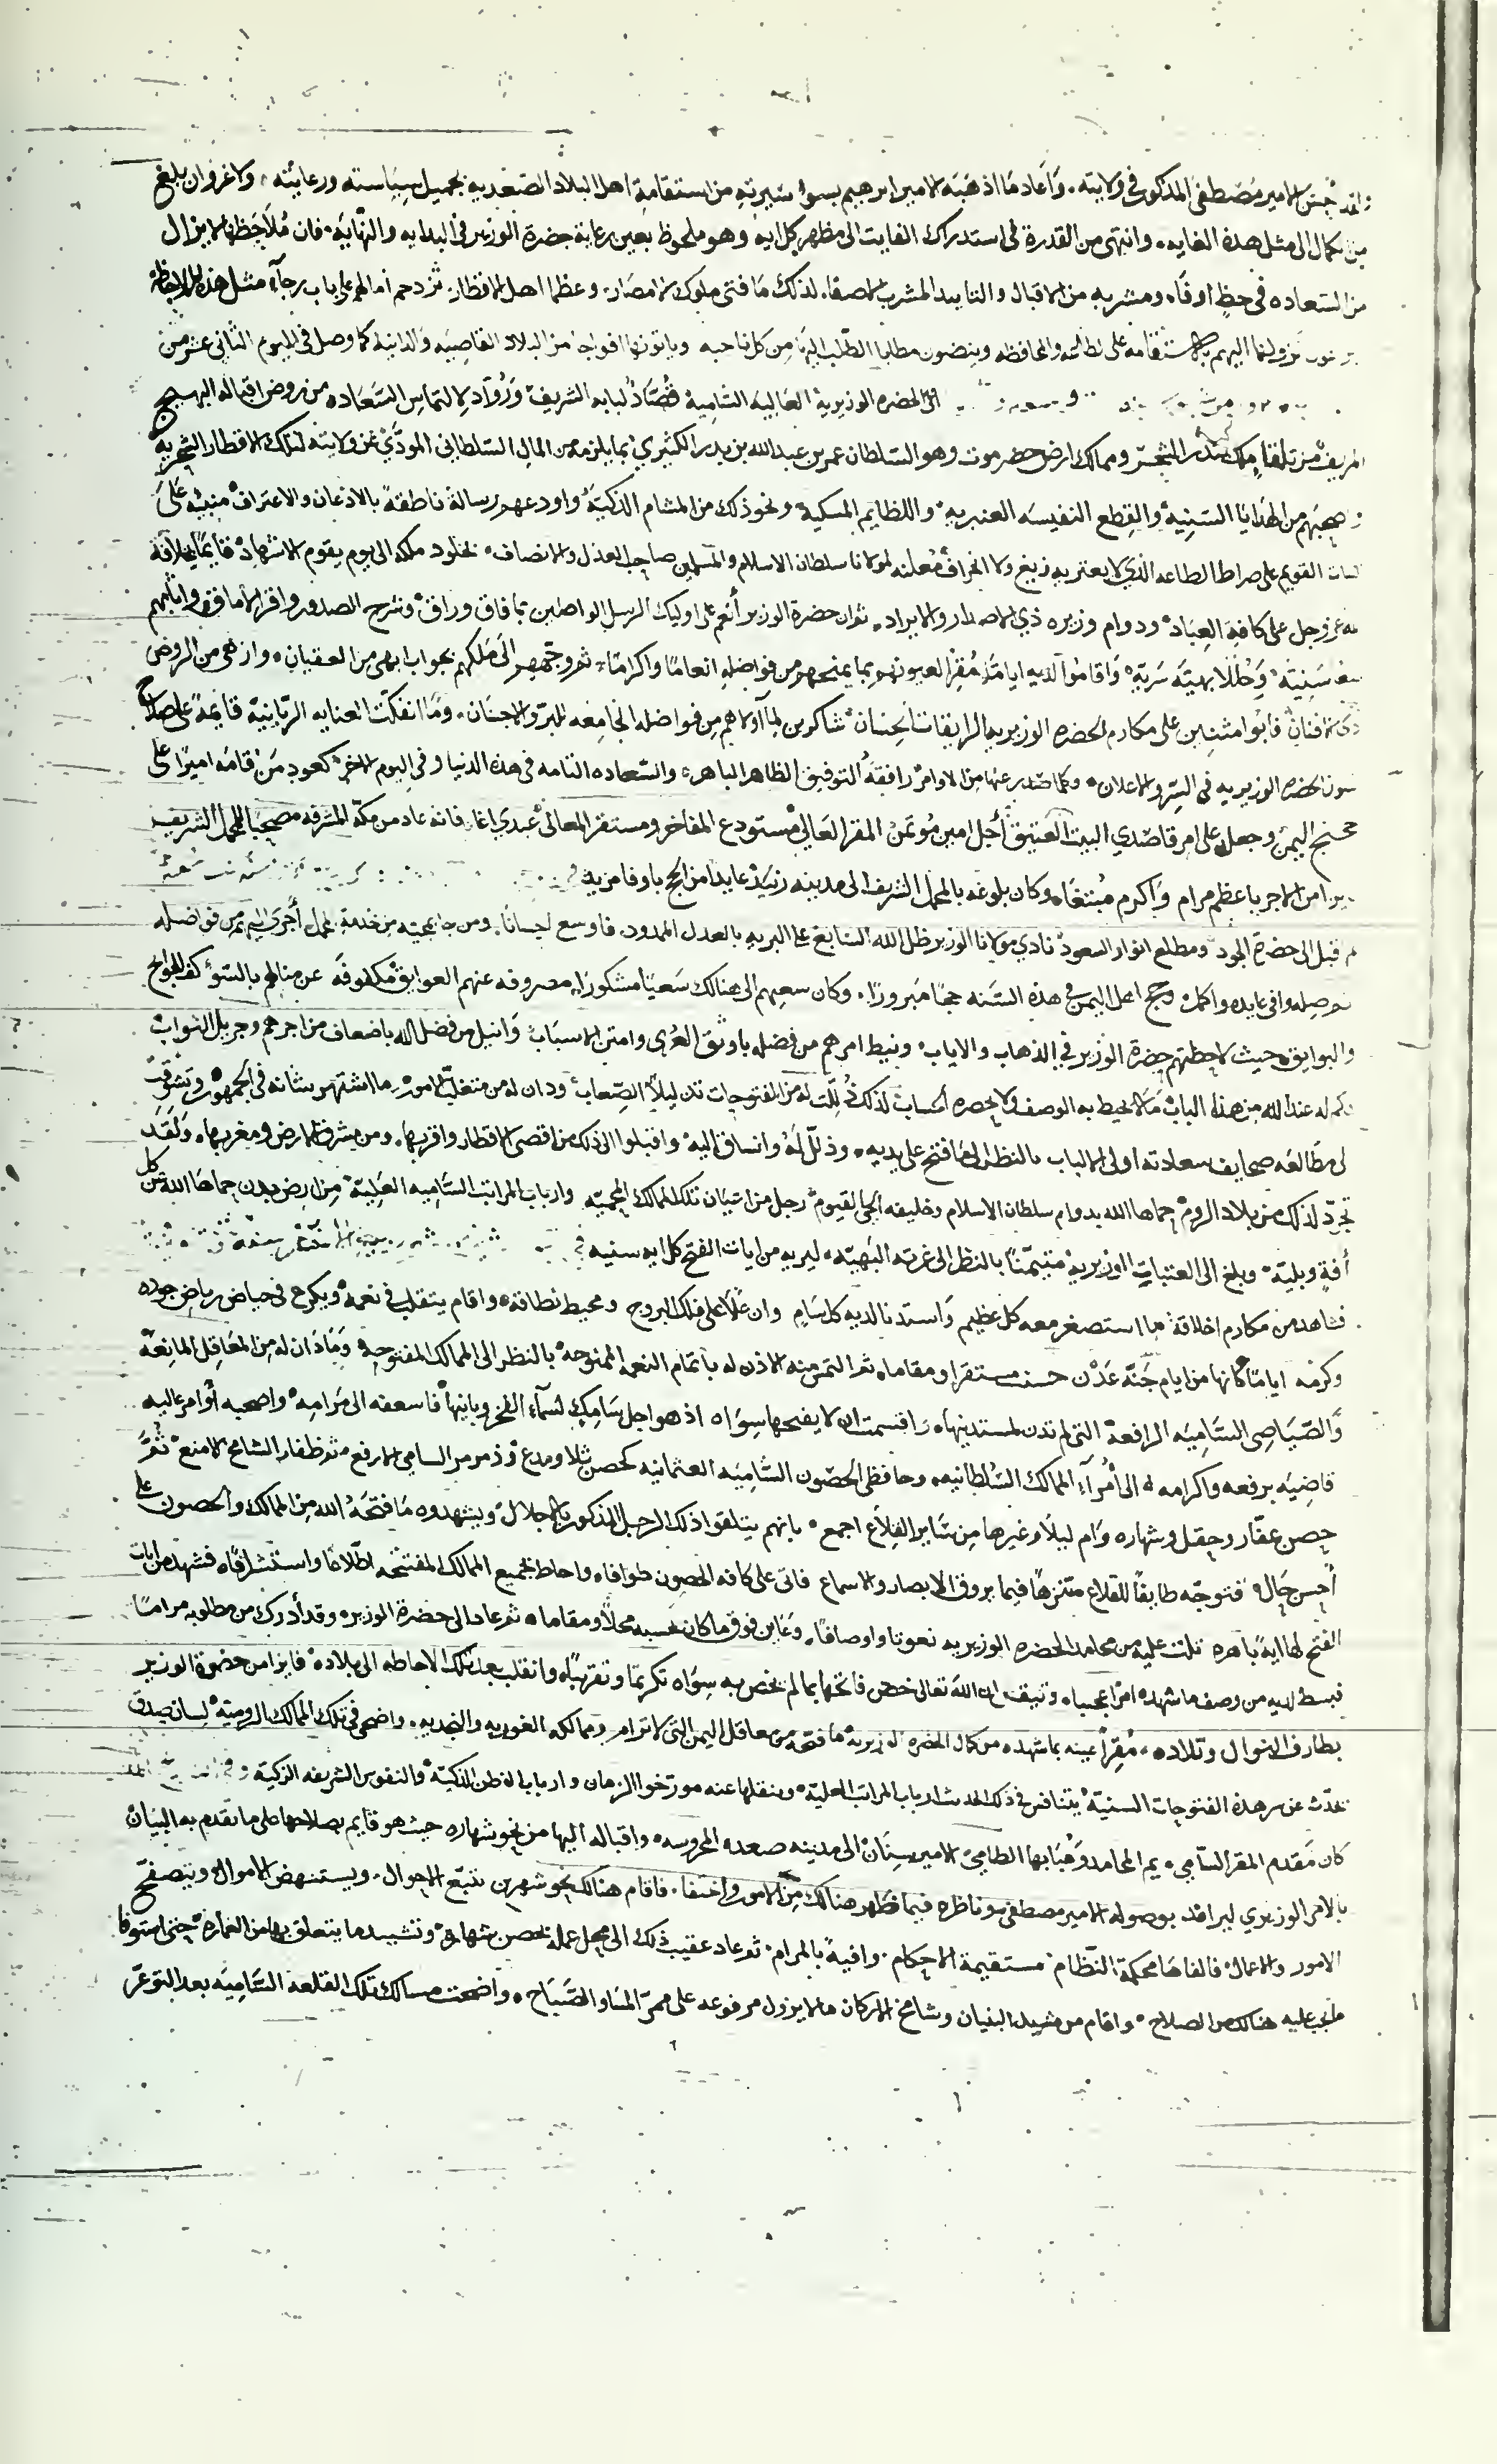 الامير مصطفى المذكور في ولايته، وأعاد ما اذهبه الامير ابرهيم بسوء سيرته من استقامة اهل البلاد الصعديه بجميل سياسته ورعايته، ولا غرو ان بلغ
من الكمال الى مثل هذه الغايه، وانتهى من القدرة على استدراك الفايت الى مظهر كل ايه وهو ملحوظ بعين رعاية حضرة الوزير في البدايه والنهايه، فان ملاحظها لا يزال
من السعاده في حظ اوفاه ومشربه من الاقبال والتاييد المشرب الاصفا، لذلك ما فتى ملوك الامصار، وعظما اهل الاقطار، تزدحم امالهم على باب رجآء مثل هذه الملاحظة
اليهم بالاستقامه على لطائفه والمحافظه وينضون مطايا الطلب اليها من كل ناحيه وياتونها افواجا من البلاد القاصيه والدانية كما وصل في اليوم الثاني عشر من
الى الحضره الوزيرية العالية الساميه قصاد لبابه الشريف ورواد لالتماس السعاده من روض اقباله البهيج
من تلقاء ملك بندر الشحر وممالك ارض حضرموت وهو السلطان عمر بن عبد الله بن بدر الكثيري بما يلزمه من المال السلطاني المودى عن ولايته لتلك الاقطار الشحريه
وصحبهم من الهدايا السنية والقطع النفيسه العنبريه واللطايم المسكية ونحو ذلك من المشام الذكية واودعهم رسالة ناطقة بالاذعان والاعتراف منبية على
الثبات القويم على صراط الطاعه الذي لا يعتريه زيغ ولا انحراف معلنه لمولانا سلطان الاسلام والمسلمين صاحب العدل والانصاف، بخلود ملكه الى يوم يقوم الاشهاد قايما بخلافة
الله عز وجل على كافة العباد ودوام وزيره ذي الاصدار والايراد، ثم ان حضرة الوزير أنعم على اوليك الرسل الواصلين بما فاق وراق وشرح الصدور واقر الاماق واثابهم
سنية وحللا بهية سرية واقاموا لديه اياما مقر العيون بما يمنحهم من فواضله انعاما واكراما، ثم وجههم الى ملكهم بجواب ابهى من العقيان، وازهى من الروض
ذي الافنان فابوا مثنين على مكارم الحضره الوزيريه الرايقات الحسان شاكرين لما اولاهم من فواضله الجامعه للبر والاحسان، وما انفكت العنايه الربانية قايمة على صلاح
شون الحضره الوزيريه في السر والاعلان، وكلما صدر عنها من الاوامر رافقه التوفيق الظاهر الباهر والسعاده التامه في هذه الدنيا وفي اليوم الاخر كعود من اقامه اميرا على
حج اليمن وجعله على امر قاصدي البيت العتيق أجل امين مؤتمن المقر العالي مستودع المفاخر ومستقر المعالي عبدي اغا، فانه عاد من مكة المشرفه مصحبا للمحمل الشريف
من الاجر باعظم مرام واكرم مبتغاه وكان بلوغه بالمحمل الشريف الى مدينة زبيد عايدا من الحج باوفا مزيه في
ثم اقبل الى حضرة الجود ومطلع انوار السعود نادي مولانا الوزير ظل الله السابغ على البريه بالعدل الممدود، فاوسع احسانا، ومن جا بمعيته من خدمة المحمل أجرى اليهم من فواضله
وصله وافي عايده واكمل وحج اهل اليمن في هذه السنه حجا مبرورا، وكان سعيهم الى هنالك سعيا مشكورا، مصروفه عنهم العوايق مكفوفة عن منالهم بالسوء كف الجوايح
والبوايق، حيث لاحظتهم حضرة الوزير في الذهاب والاياب ونيط امرهم من فضله باوثق العرى وامتن الاسباب وانيل من فضل الله باضعاف من اجرهم وجزيل الثواب
وكم له عند الله من هذا الباب ما لا يحيط به الوصف ولا يحصره أحساب لذلك ذللت له من الفتوحات تذليلا الصعاب ودان له من متغلبات الامور ما اشتهر شانه في الجمهور وتشوقت
الى مطالعه صحايف سعادته اولى الالباب بالنظر الى ما فتح على يديه، وذلل له وانساق اليه واقبلوا لذلك من اقصى الاقطار واقربها، ومن مشرق الارض ومغربها، ولقد
تجرد لذلك من بلاد الروم حماها الله بدوام سلطان الاسلام وخليفه الحي القيوم رجل من اعيان تلك الممالك المحميه وارباب المراتب الساميه العلية من ارض بدون حماها الله من كل
أفة وبلية، وبلغ الى العتبات الوزيرية متيمنا بالنظر الى غرته البهيه، ليريه من ايات الفتح كل ايه سنيه في
فشاهد من مكارم اخلاقه ما استصغر معه كل عظيم واستدنا لديه كل سام وان علا على فلك البروج ومحيط نطاقه، واقام يتقلب في نعمه ويكرع في حياض رياض جوده
وكرمه اياما كانها من ايام جنة عدن حسنت مستقرا ومقاما، ثم التمس منه الاذن له باتمام النعم الممنوحه بالنظر الى الممالك المفتوحه وما دان له من المعاقل المانعة
والصياصي الساميه الرافعة التي لم تدن لمستدنيها، واقسمت ان لا يفتحها سواه اذ هو اجل سامك لسمآء الفخر وبانيها فاسعفه الى مرامه، واصحبه أوامر عاليه
قاضيه برفعه واكرامه الى أمرآء الممالك السلطانيه، وحافظي الحصون الساميه العثمانيه كحصن ثلا ومدع وذمرمر السامي الارفع ثم ظفار الشامخ الامنع ثم
حصن عفار وحفل وشهاره وام ليلا وغيرها من ساير القلاع اجمع بانهم يتلقوا ذلك الرجل المذكور بالاجلال ويشهدوه ما فتحه الله من الممالك والحصون على
أحسن حال، فتوجه طايفا للقلاع متنزها فيما يروق الابصار والاسماع فاتى على كافه الحصون طوافا، واحاط بجميع الممالك المفتتحه اطلاعا واستشرافا، فشهد من ايات
الفتح لها ايه باهره تلت عليه من محامد الحضره الوزيريه نعوتا واوصافا، وعاين فوق ما كان يحسبه محلا ومقاما، ثم عاد الى حضرة الوزير، وقد أدرك من مطلوبه مراما
فبسط لديه من وصف ما شهده امرا عجيبا، وتيقن ان الله تعالى خص فاتحها بما لم يخص به سواه تكريما وتقريبا، وانقلب بعد تلك الاحاطه الى بلاده فايزا من حضرة الوزير
بطارف النوال وتلاده، مقرا عينه بما شهده من كمال الحضره الوزيرية ما فتحه من معاقل اليمن التي لا ترام وممالكه الغوريه والنجديه، واضحى في تلك الممالك الرومية لسان صدق
تحدث عن سر هذه الفتوحات السنية، يتنافس في ذلك الحديث ارباب المراتب العلية وينقلها عنه مورخوا الزمان وارباب الفطن الذكية والنفوس الشريفه الزكية وفي
كان مقدم المقر السامي، يم المحامد وعبابها الطامي الامير سنان الى مدينه صعده المحروسه، واقباله اليها من نحو شهاره حيث هو قايم بصلاحها على ما تقدم به البيان
بالامر الوزيري ليرافد بوصوله الامير مصطفى موناظره فيما ظهر هنالك من الامور واختفا، فاقام هنالك نحو شهرين يتتبع الاحوال، ويستنهض الاموال ويتصفح
الامور والاعمال فالفاها محكمة النظام مستقيمة الاحكام، وافية بالمرام، ثم عاد عقيب ذلك الى محل عمله بحصن شهاره وتشييد ما يتعلق بها من العماره حتى استوفا
ما يجب عليه هنالك من الصلاح، واقام من مشيد البنيان وشامخ الاركان ما لا يزول مرفوعه على ممر المساء والصباح، واضحت مسالك تلك القلعه الساميه بعد التوعر